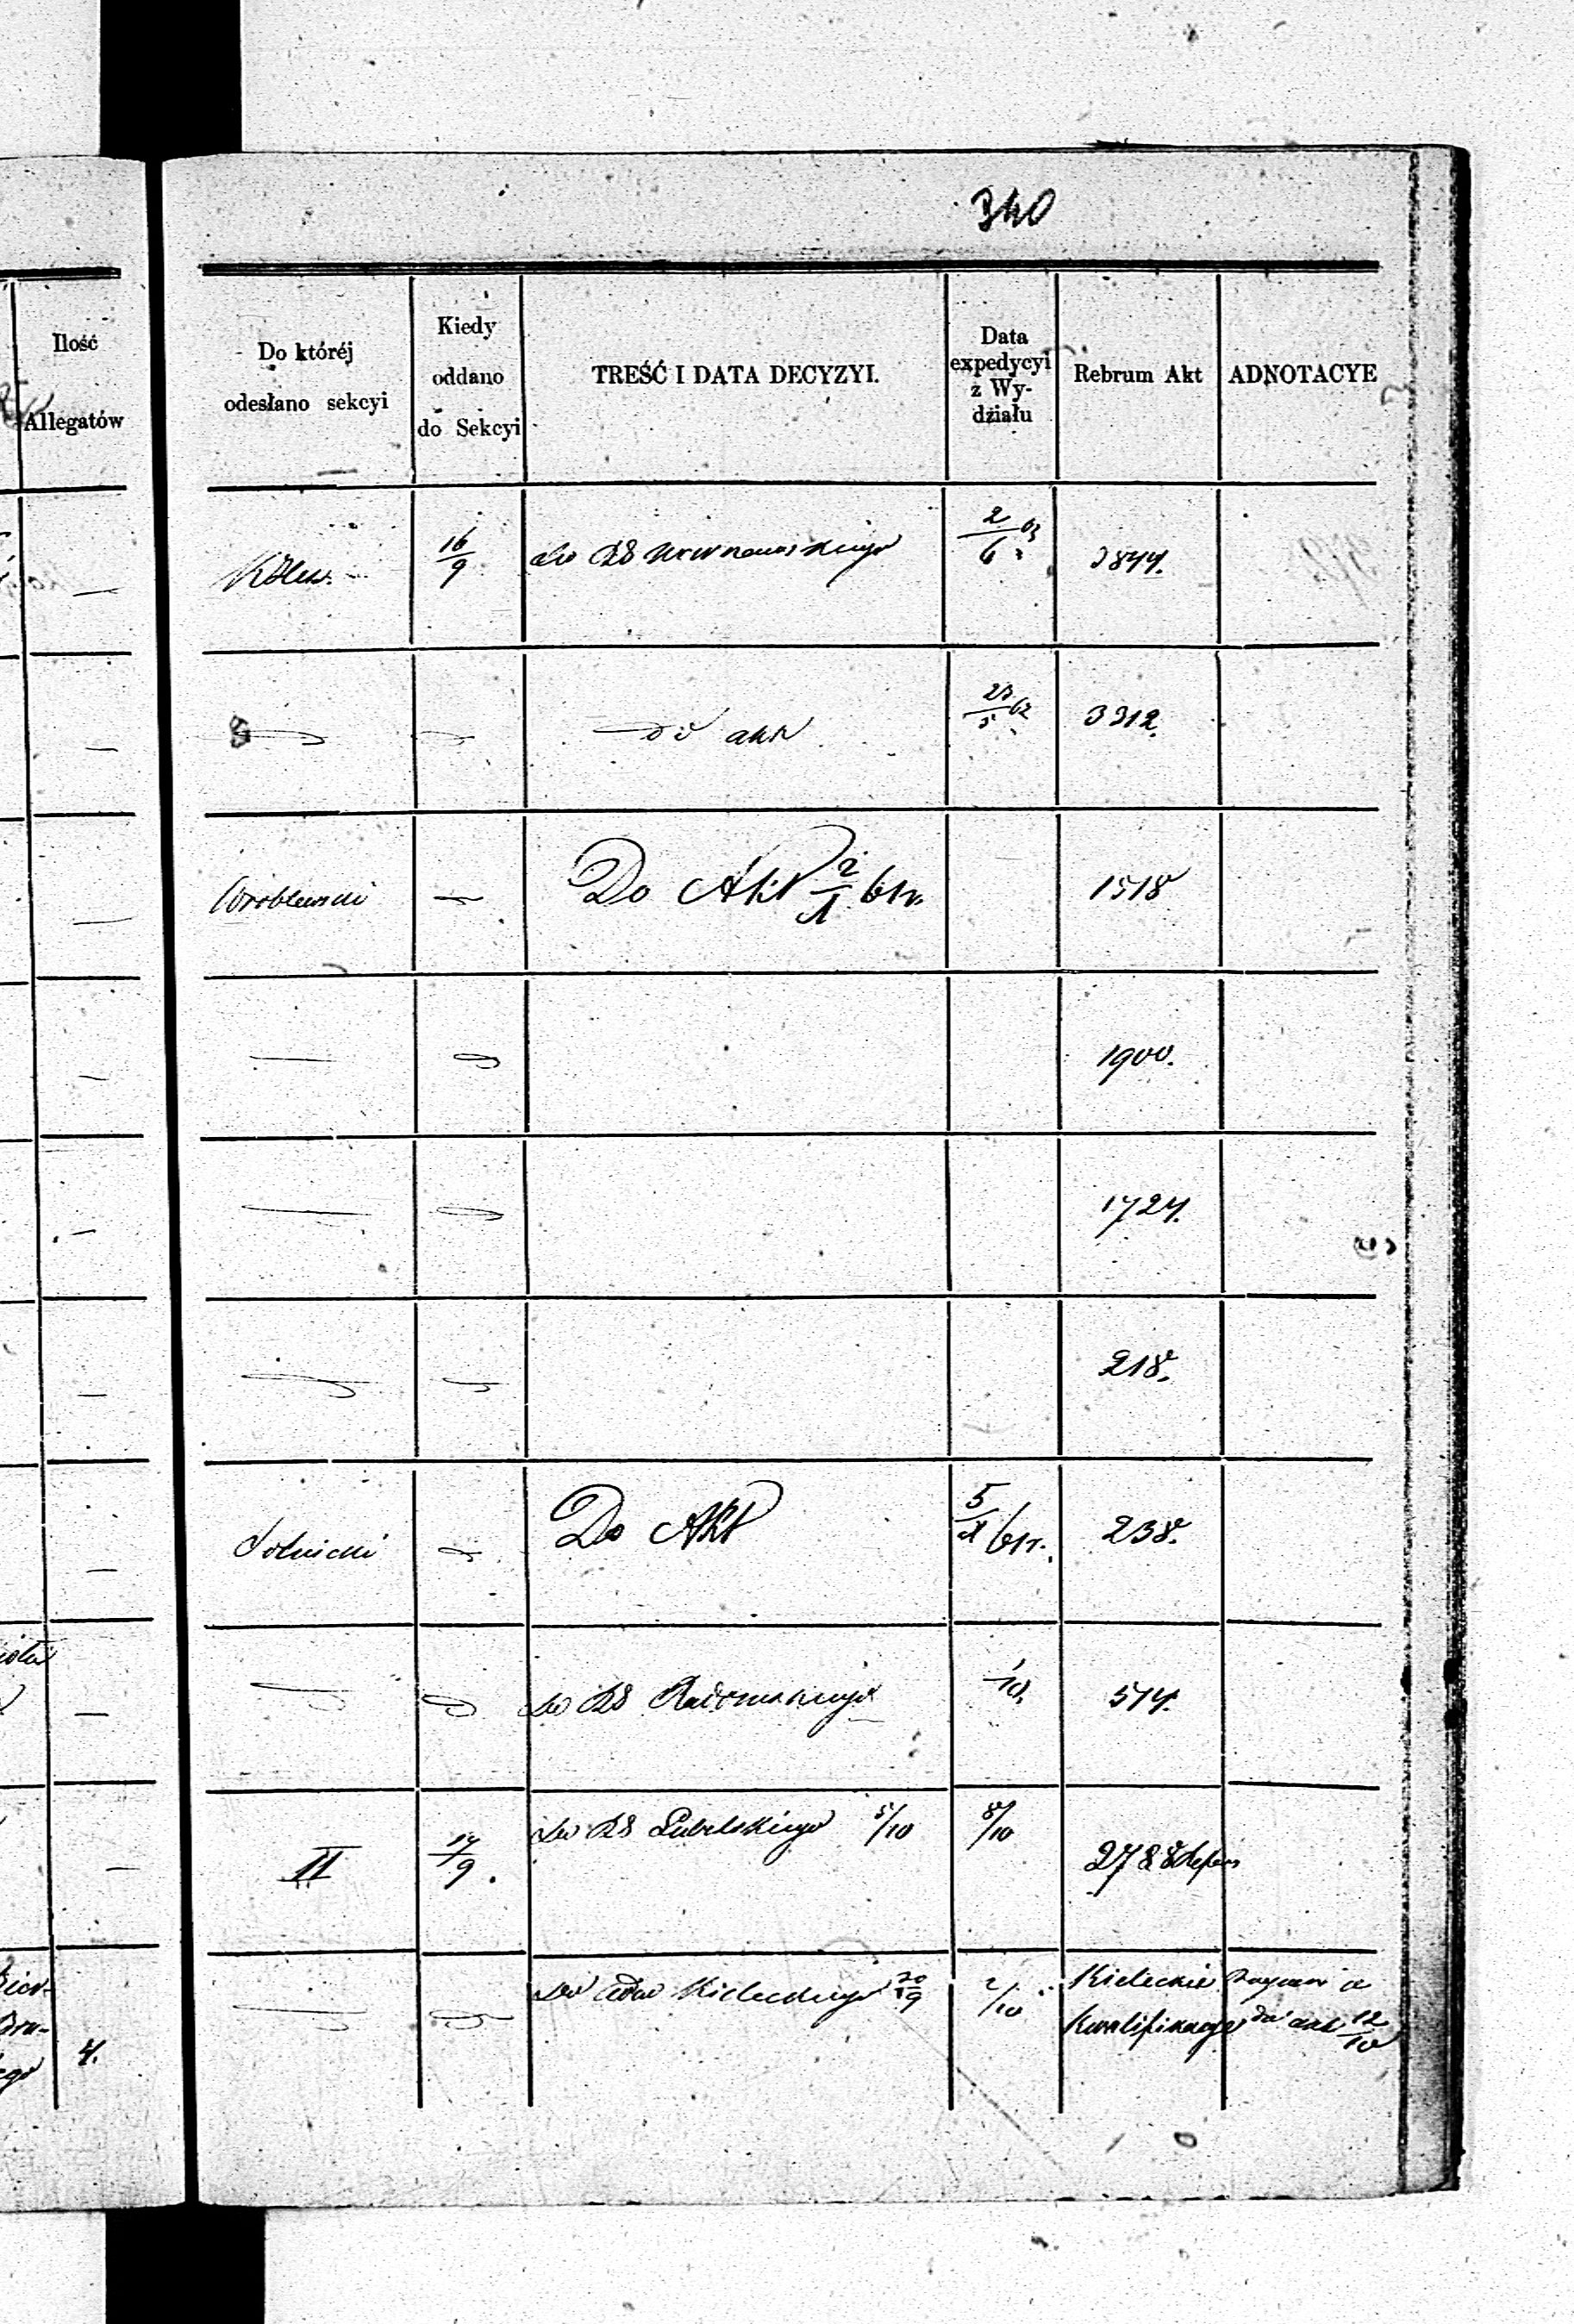 340
Ilość
Allegatów
Do któréj
odesłano sekcyi
Kiedy
oddano
do Sekcyi
TREŚĆ I DATA DECYZYI.
Data
expedycyi
z Wy-
działu
Rebrum Akt
ADNOTACYE
16/9
do
2/6 63
3844.
do akt
23/5 62
3312.
Wróblewski
Do Akt 2/1 61r.
1518
1900.
1724.
218.
Solnicki
Do Akt
5/X 61r.
238.
do RS Radomskiego
1/10
514.
II
17/9.
do RS Lubelskiego 5/10
8/10
2788
4.
do Kieleckiego 30/9
2/10
Kieleckie
Kwalifikacye do akt 12/10